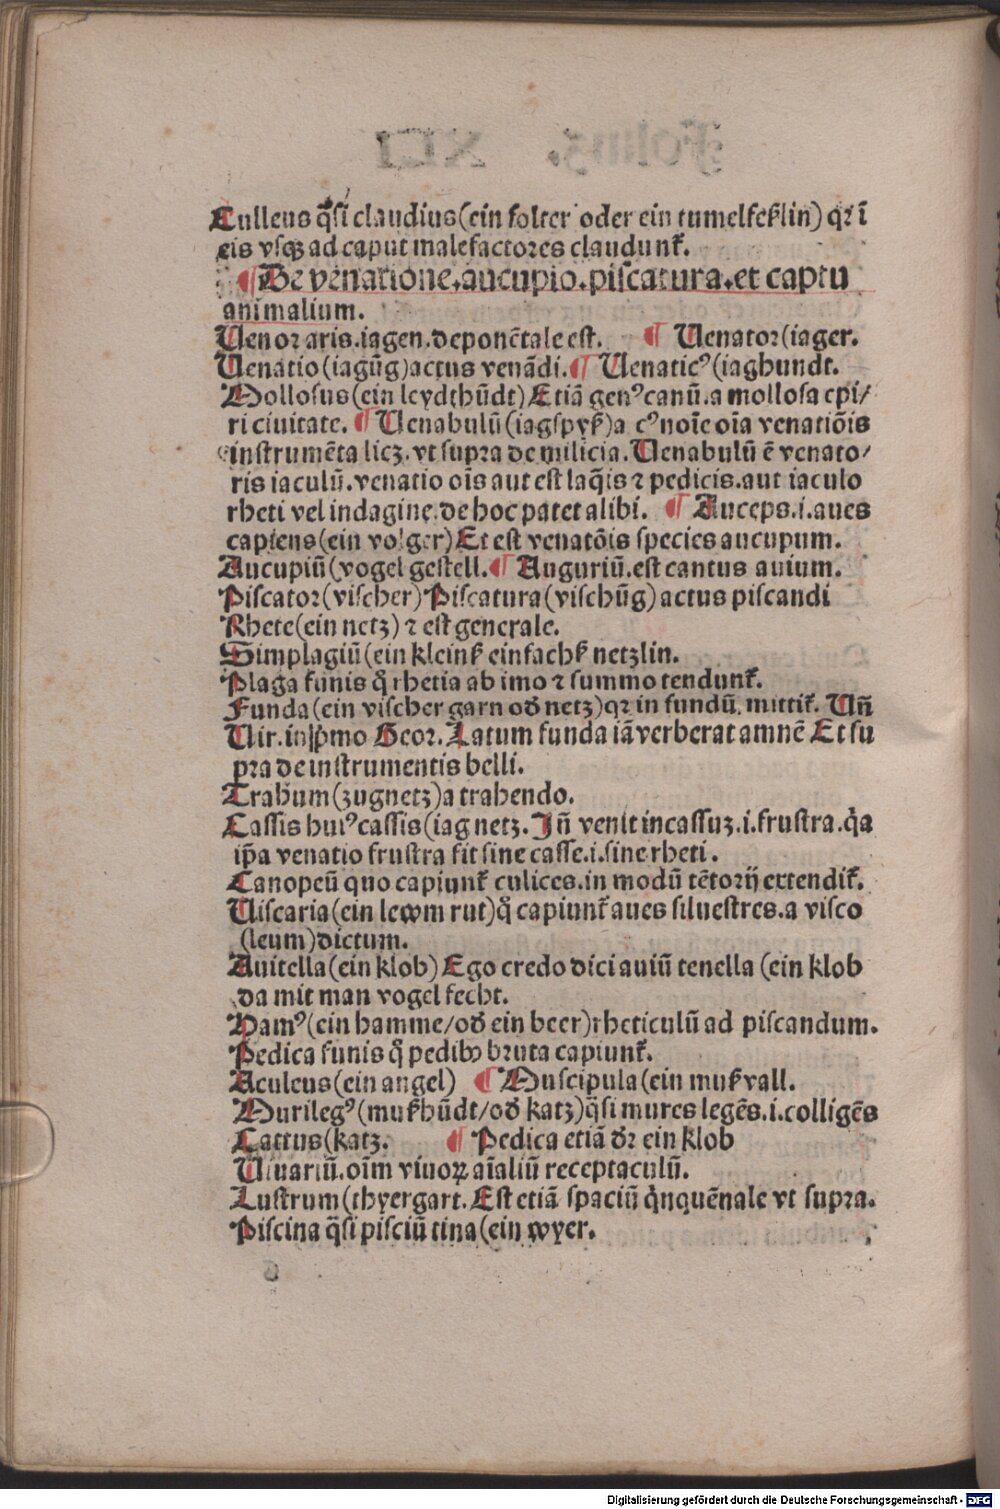 Culleus q̄si claudius (ein folter oder ein tumelfeklin) qꝛ ī
eis vsqꝫ ad caput malefactores claudunt̄.
¶ De venatione. aucupio. piscatura. et captu
animalium.
Uenor aris. iagen. deponētale est. ¶ Uenator (iager.
Uenatio (iagūg) actus venādi. ¶ Uenaticꝰ (iaghundt.
Mollosus (ein leydthūdt) Etiā genꝰ canū. a mollosa epi/
ri ciuitate. ¶ Uenabulū (iagspyß) a cꝰ noīe oīa venatiōis
instrumēta licꝫ. vt supra de milicia. Uenabulū ē venato/
ris iaculū. venatio oīs aut est laq̄is ⁊ pedicis. aut iaculo
rheti vel indagine. de hoc patet alibi. ¶ Auceps .i. aues
capiens (ein volger) Et est venatōis species aucupum.
Aucupiū (vogel gestell. ¶ Auguriū. est cantus auium.
Piscator (vischer) Piscatura (vischūg) actus piscandi
Rhete (ein netz) ⁊ est generale.
Simplagiū (ein kleinß einfachß netzlin.
Plaga funis q̄ rhetia ab imo ⁊ summo tendunt̄.
Funda (ein vischer garn oď netz) qꝛ in fundū mittit̄. Uñ
Uir. in p̄mo Geor. Latum funda iā verberat amnē Et su
pra de instrumentis belli.
Trahum (zugnetz) a trahendo.
Cassis huiꝰ cassis (iag netz. Iñ venit incassuꝫ .i. frustra. q̄a
ip̄a venatio frustra fit sine casse .i. sine rheti.
Canopeū quo capiunt̄ culices. in modū tētorij extendit̄.
Uiscaria (ein lewm rut) q̄ capiunt̄ aues siluestres. a visco
(leum) dictum.
Auitella (ein klob) Ego credo dici auiū tenella (ein klob
da mit man vogel fecht.
Hamꝰ (ein hamme/oď ein beer) rheticulū ad piscandum.
Pedica funis q̄ pedibꝫ bruta capiunt̄.
Aculeus (ein angel) ¶ Muscipula (ein mußvall.
Murilegꝰ (mußhūdt/oď katz) q̄si mures legēs .i. colligēs
Cattus (katz. ¶ Pedica etiā dꝛ ein klob
Uiuariū. oīm viuoꝝ aīaliū receptaculū.
Lustrum (thyergart. Est etiā spaciū q̄nquēnale vt supra.
Piscina q̄si pisciū tina (ein wyer.
Digitalisierung gefördert durch die Deutsche Forschungsgemeinschaft - DFG